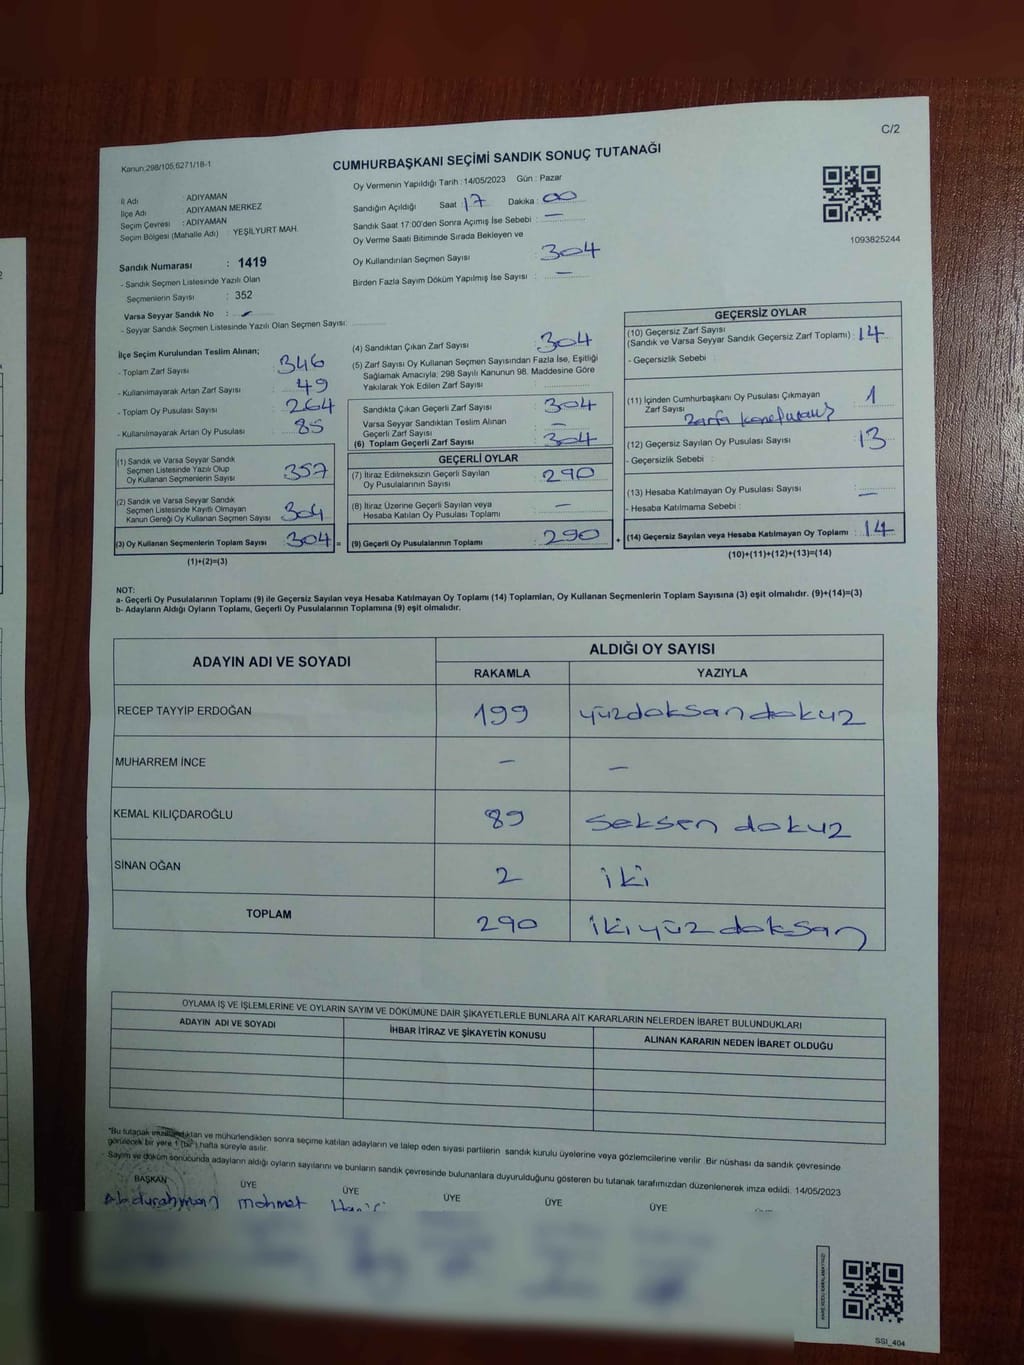 C/2
Kanun;298/105,6271/18-1
CUMHURBAŞKANI SEÇİMİ SANDIK SONUÇ TUTANAĞI
İl Adı : ADIYAMAN
İlçe Adı : ADIYAMAN MERKEZ
Seçim Çevresi : ADIYAMAN
Seçim Bölgesi (Mahalle Adı) : YEŞİLYURT MAH.
Sandık Numarası : 1419
- Sandık Seçmen Listesinde Yazılı Olan
Seçmenlerin Sayısı : 352
Varsa Seyyar Sandık No :
- Seyyar Sandık Seçmen Listesinde Yazılı Olan Seçmen Sayısı:
Oy Vermenin Yapıldığı Tarih : 14/05/2023 Gün : Pazar
Sandığın Açıldığı Saat 17 Dakika : 00
Sandık Saat 17:00'den Sonra Açımış İse Sebebi : —
Oy Verme Saati Bitiminde Sırada Bekleyen ve
Oy Kullandırılan Seçmen Sayısı : 304
Birden Fazla Sayım Döküm Yapılmış İse Sayısı : —
1093825244
İlçe Seçim Kurulundan Teslim Alınan;
- Toplam Zarf Sayısı : 346
- Kullanılmayarak Artan Zarf Sayısı : 49
- Toplam Oy Pusulası Sayısı : 264
- Kullanılmayarak Artan Oy Pusulası : 85
(1) Sandık ve Varsa Seyyar Sandık
Seçmen Listesinde Yazılı Olup
Oy Kullanan Seçmenlerin Sayısı : 357
(2) Sandık ve Varsa Seyyar Sandık
Seçmen Listesinde Kayıtlı Olmayan
Kanun Gereği Oy Kullanan Seçmen Sayısı : 304
(3) Oy Kullanan Seçmenlerin Toplam Sayısı : 304 =
(1)+(2)=(3)
(4) Sandıktan Çıkan Zarf Sayısı : 304
(5) Zarf Sayısı Oy Kullanan Seçmen Sayısından Fazla İse, Eşitliği
Sağlamak Amacıyla; 298 Sayılı Kanunun 98. Maddesine Göre
Yakılarak Yok Edilen Zarf Sayısı :
Sandıkta Çıkan Geçerli Zarf Sayısı : 304
Varsa Seyyar Sandıktan Teslim Alınan
Geçerli Zarf Sayısı : —
(6) Toplam Geçerli Zarf Sayısı : 304
GEÇERLİ OYLAR
(7) İtiraz Edilmeksizin Geçerli Sayılan
Oy Pusulalarının Sayısı : 290
(8) İtiraz Üzerine Geçerli Sayılan veya
Hesaba Katılan Oy Pusulası Toplamı : —
(9) Geçerli Oy Pusulalarının Toplamı : 290 +
GEÇERSİZ OYLAR
(10) Geçersiz Zarf Sayısı
(Sandık ve Varsa Seyyar Sandık Geçersiz Zarf Toplamı) : 14
- Geçersizlik Sebebi :
(11) İçinden Cumhurbaşkanı Oy Pusulası Çıkmayan
Zarf Sayısı : 1
(12) Geçersiz Sayılan Oy Pusulası Sayısı : 13
- Geçersizlik Sebebi :
(13) Hesaba Katılmayan Oy Pusulası Sayısı : —
- Hesaba Katılmama Sebebi :
(14) Geçersiz Sayılan veya Hesaba Katılmayan Oy Toplamı : 14
(10)+(11)+(12)+(13)=(14)
NOT:
a- Geçerli Oy Pusulalarının Toplamı (9) ile Geçersiz Sayılan veya Hesaba Katılmayan Oy Toplamı (14) Toplamları, Oy Kullanan Seçmenlerin Toplam Sayısına (3) eşit olmalıdır. (9)+(14)=(3)
b- Adayların Aldığı Oyların Toplamı, Geçerli Oy Pusulalarının Toplamına (9) eşit olmalıdır.
ADAYIN ADI VE SOYADI ALDIĞI OY SAYISI
RAKAMLA YAZIYLA
RECEP TAYYİP ERDOĞAN 199 yüzdoksandokuz
MUHARREM İNCE — —
KEMAL KILIÇDAROĞLU 89 seksen dokuz
SİNAN OĞAN 2 iki
TOPLAM 290 ikiyüz doksan
OYLAMA İŞ VE İŞLEMLERİNE VE OYLARIN SAYIM VE DÖKÜMÜNE DAİR ŞİKAYETLERLE BUNLARA AİT KARARLARIN NELERDEN İBARET BULUNDUKLARI
ADAYIN ADI VE SOYADI İHBAR İTİRAZ VE ŞİKAYETİN KONUSU ALINAN KARARIN NEDEN İBARET OLDUĞU
*Bu tutanak imzalandıktan ve mühürlendikten sonra seçime katılan adayların ve talep eden siyasi partilerin sandık kurulu üyelerine veya gözlemcilerine verilir. Bir nüshası da sandık çevresinde
görülecek bir yere 1 (bir) hafta süreyle asılır.
Sayım ve döküm sonucunda adayların aldığı oyların sayılarını ve bunların sandık çevresinde bulunanlara duyurulduğunu gösteren bu tutanak tarafımızdan düzenlenerek imza edildi. 14/05/2023
BAŞKAN ÜYE ÜYE ÜYE ÜYE ÜYE
Abdurahman Mehmet
SSI_404